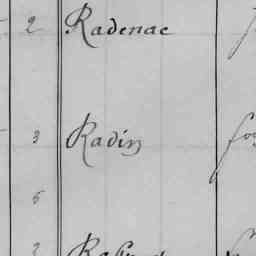 2 Radenac
3 Radin
6
2